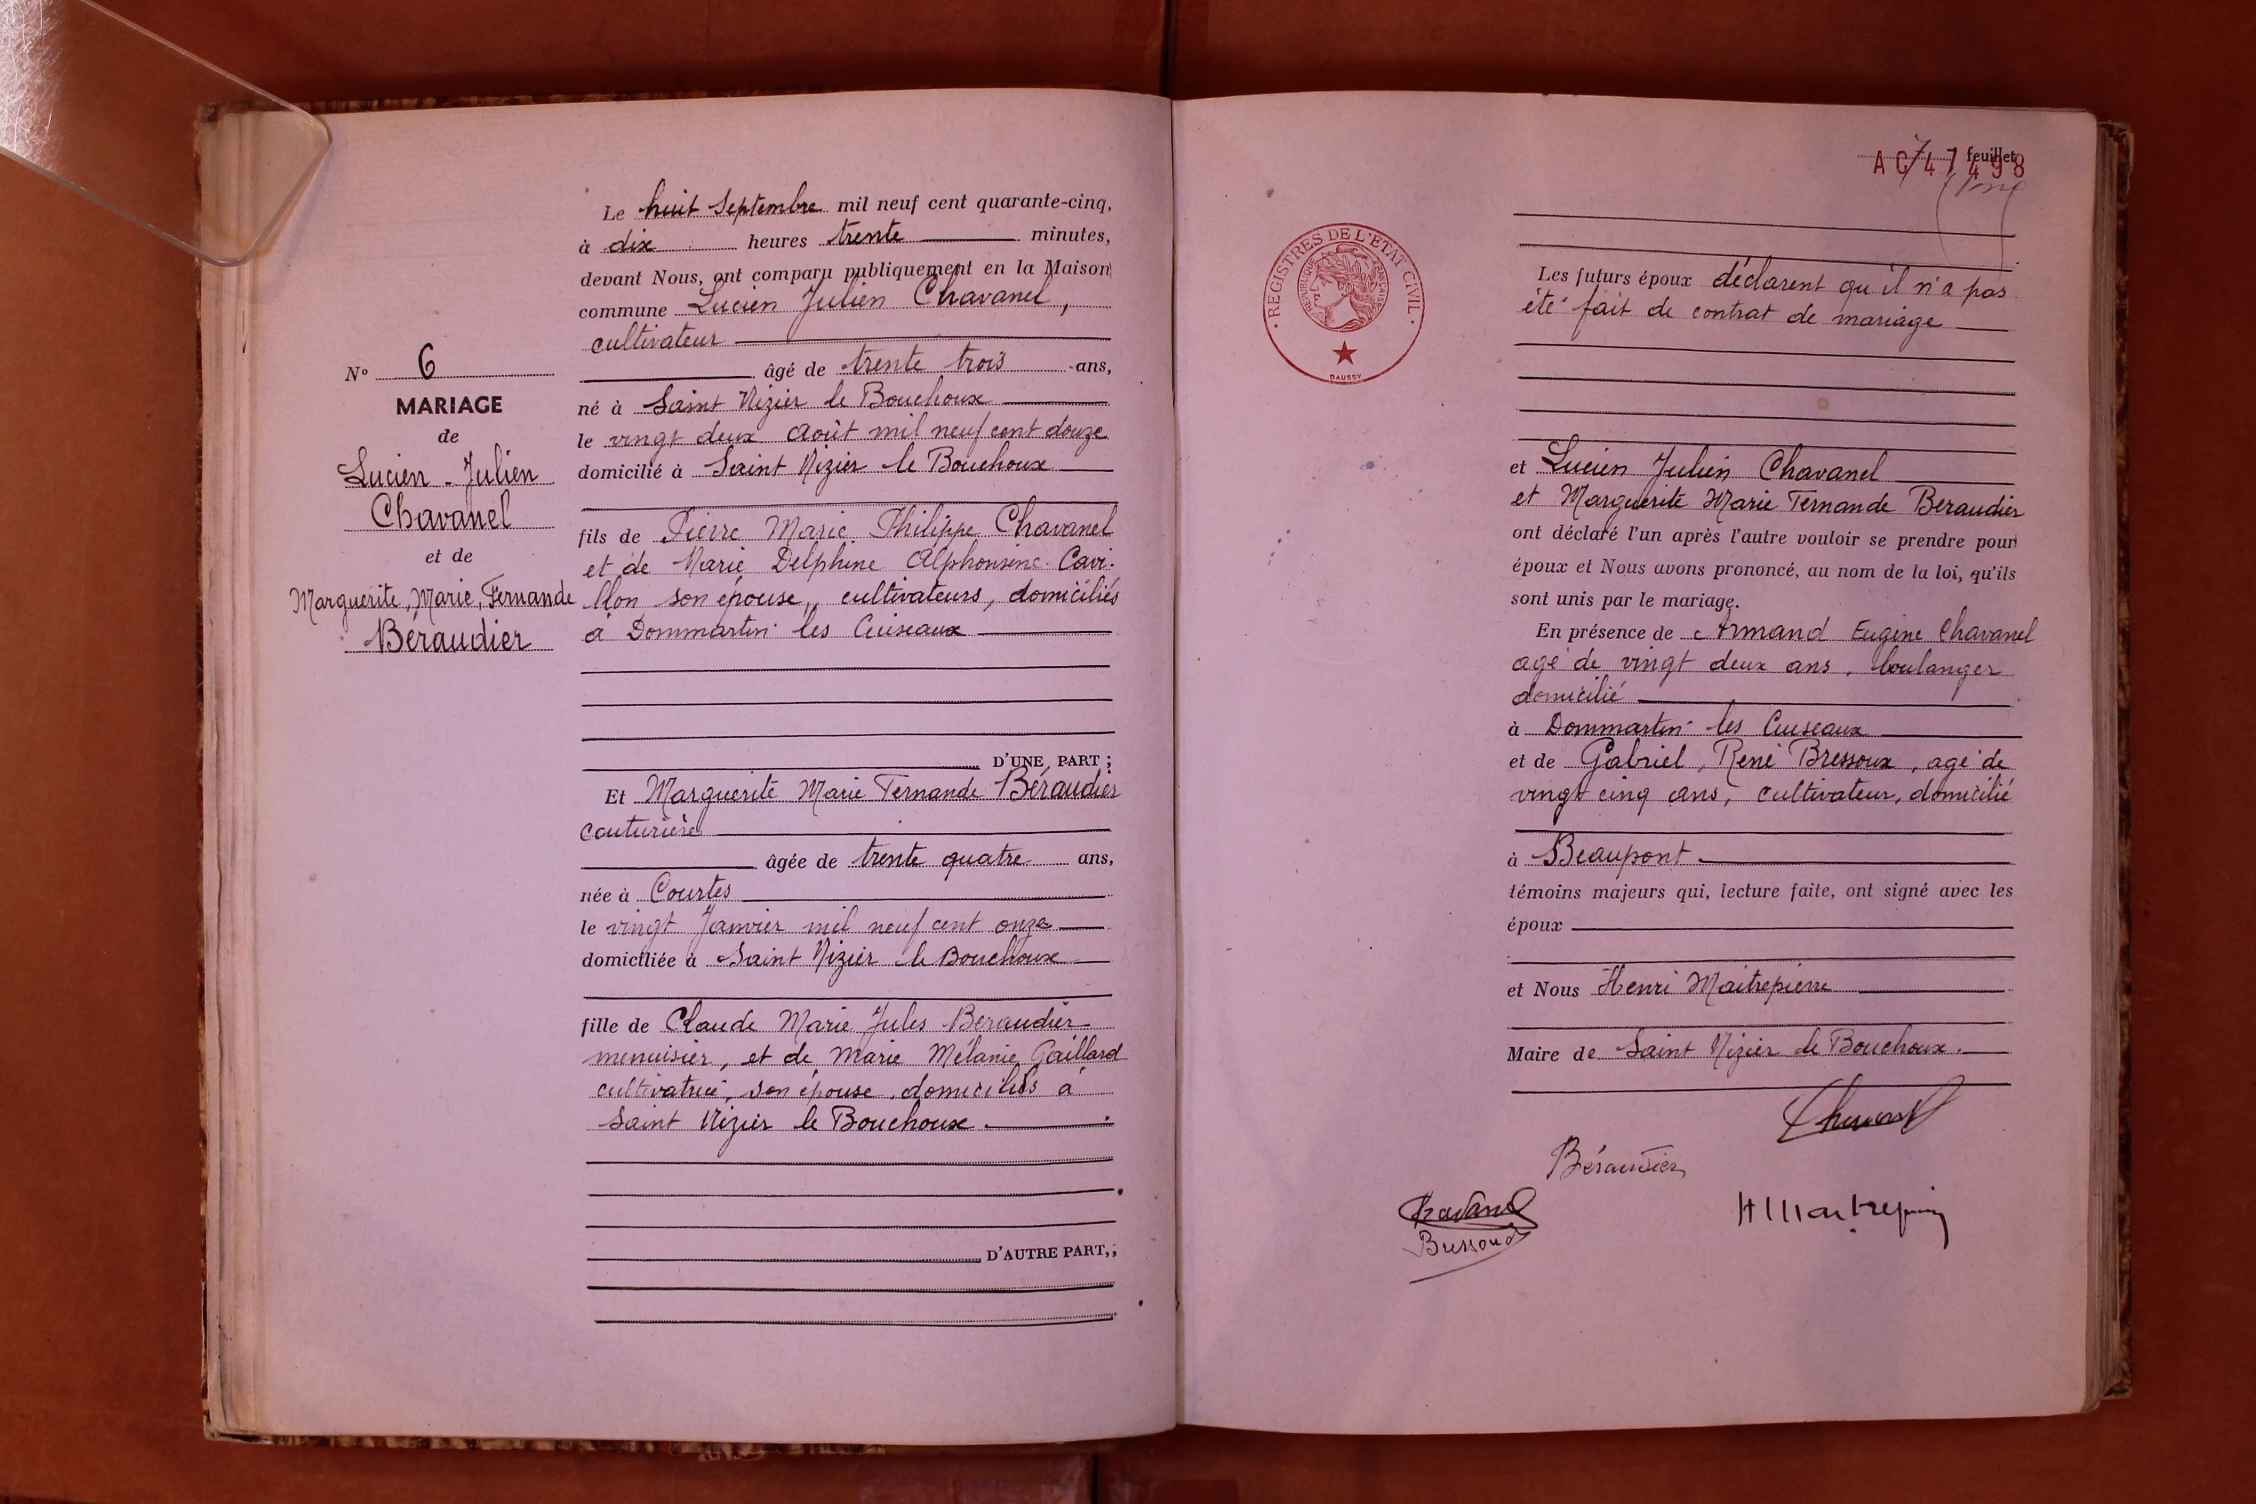 Le huit Septembre mil neuf cent quarante-cinq,
à dix heures trente minutes,
devant Nous, ont comparu publiquement en la Maison
commune Lucien Julien Chavanel,
cultivateur
âgé de trente trois ans,
né à Saint Nizier le Bouchoux
le vingt deux Août mil neuf cent douze
domicilié à Saint Nizier le Bouchoux
fils de Pierre Marie Philippe Chavanel
et de Marie Delphine Alphonsine Cavi-
llon son épouse, cultivateurs, domiciliés
à Dommartin les Cuiseaux
D'UNE PART ;
Et Marguerite Marie Fernande Béraudier
couturière
âgée de trente quatre ans,
née à Courtes
le vingt Janvier mil neuf cent onze
domiciliée à Saint Nizier le Bouchoux
fille de Claude Marie Jules Beraudier
menuisier, et de Marie Mélanie Gaillard
cultivatrice, son épouse, domiciliés à
Saint Nizier le Bouchoux.
D'AUTRE PART,;
N° 6
MARIAGE
de
Lucien - Julien
Chavanel
et de
Marguerite, Marie, Fernande
Béraudier
feuillet
REGISTRES DE L'ÉTAT CIVIL
RÉPUBLIQUE FRANÇAISE
DAUSSY
Les futurs époux déclarent qu'il n'a pas
été fait de contrat de mariage
et Lucien Julien Chavanel
et Marguerite Marie Fernande Beraudier
ont déclaré l'un après l'autre vouloir se prendre pour
époux et Nous avons prononcé, au nom de la loi, qu'ils
sont unis par le mariage.
En présence de Armand Eugène Chavanel
agé de vingt deux ans, boulanger
domicilié
à Dommartin les Cuiseaux
et de Gabriel, René Bressoux, agé de
vingt cinq ans, cultivateur, domicilié
à Beaupont
témoins majeurs qui, lecture faite, ont signé avec les
époux
et Nous Henri Maitrepierre
Maire de Saint Nizier le Bouchoux.
Chavanel
Béraudier
Chavanel
HMaitrepierre
Bressoux